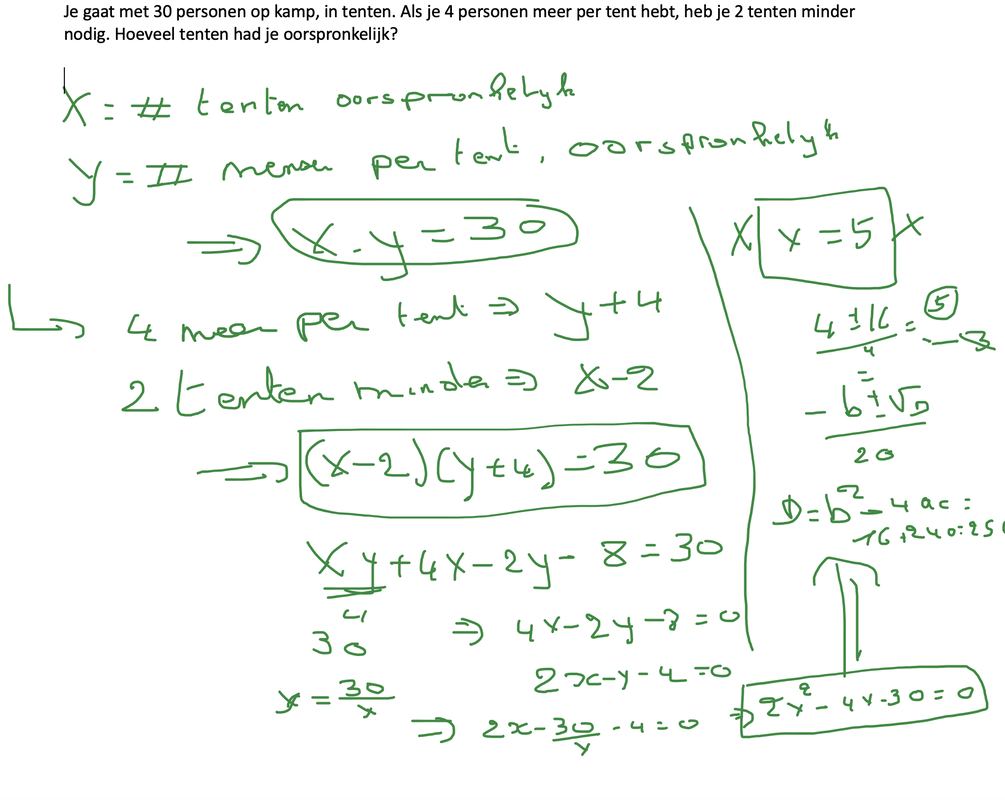 Je gaat met 30 personen op kamp, in tenten. Als je 4 personen meer per tent hebt, heb je 2 tenten minder
nodig. Hoeveel tenten had je oorspronkelijk?
X = # tenten oorspronkelyk
y = # mensen per tent, oorspronkelyk
=> x.y = 30
4 meer per tent => y+4
2 tenten minder => x-2
=> (x-2)(y+4) = 30
xy+4x-2y-8 = 30
30
=> 4x-2y-8 = 0
2x-y-4 = 0
y = 30/x
=> 2x-30/x-4 = 0
=> 2x²-4x-30 = 0
D = b²-4ac =
16+240=256
-b±√D
2a
=
4±16 = 5
4
-3
x = 5